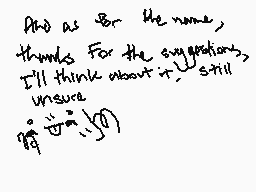 And as for the name,
thanks For the suggestions,
I'll think about it, still
unsure